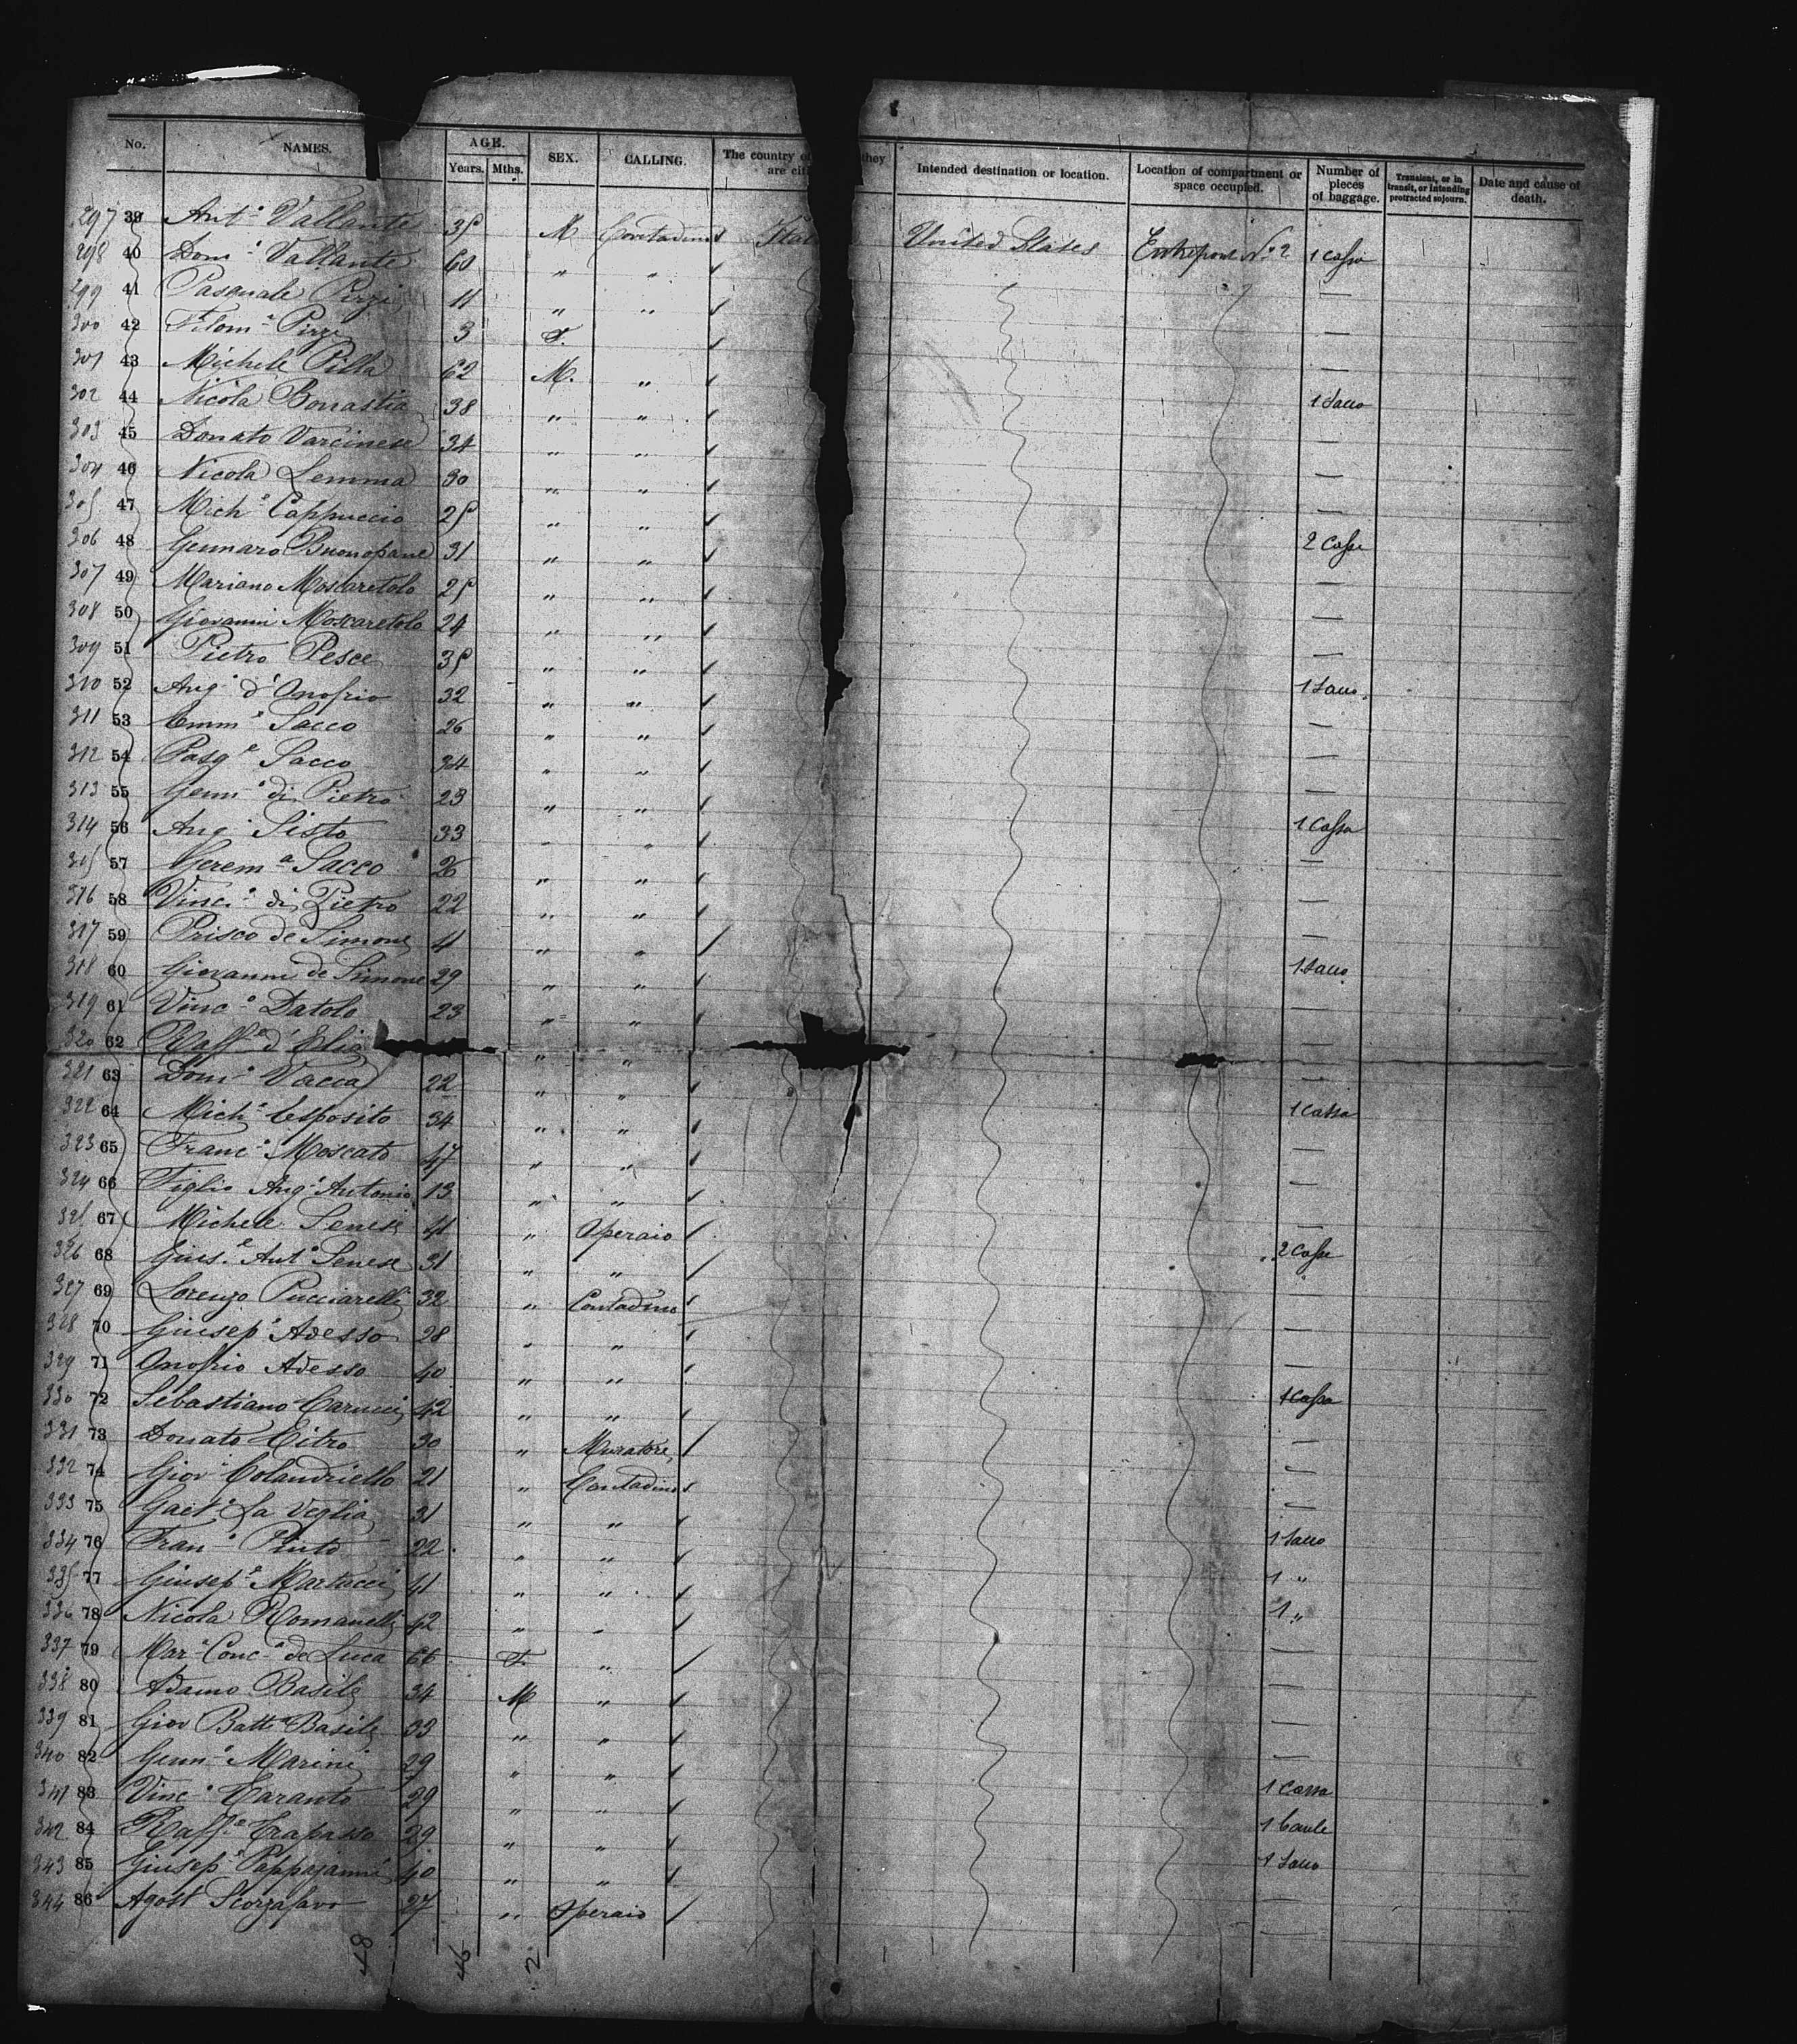 No. NAMES. AGE. Years. Mths. SEX. CALLING. The country of they are citi Intended destination or location. Location of compartment or space occupied. Number of pieces of baggage. Transient, or in transit, or intending protracted sojourn. Date and cause of death.
297 39 Ant.o Vallante 35 M Contadino Ital United States No. 2 1 Cassa
298 40 Dom.o Vallante 60 " " —
299 41 Pasquale Pizzi 11 " " —
300 42 Filom.a Pizzi 3 F. —
301 43 Michele Pilla 62 M. " —
302 44 Nicola Bonastia 38 " " 1 Sacco
303 45 Donato Varcinese 34 " " —
304 46 Nicola Lemma 30 " " —
305 47 Mich.e Cappuccio 25 " " —
306 48 Gennaro Buonopane 31 " " 2 Casse
307 49 Mariano Moscaretolo 25 " " —
308 50 Giovanni Moscaretolo 24 " " —
309 51 Pietro Pesce 35 " " —
310 52 Ang.o d'Onofrio 32 " " 1 Sacco
311 53 Emm.e Sacco 26 " " —
312 54 Pasq.e Sacco 34 " " —
313 55 Genn.o di Pietro 23 " " —
314 56 Ang.o Sisto 33 " " 1 Cassa
315 57 Gerem.a Sacco 26 " " —
316 58 Vinc.o di Pietro 22 " " —
317 59 Prisco de Simone 41 " " —
318 60 Giovanni de Simone 29 " " 1 Sacco
319 61 Vinc.o Datolo 23 " " —
320 62 Raff.e d'Elia " " —
321 63 Dom.o Vacca 22 " " —
322 64 Mich.e Esposito 34 " " 1 Cassa
323 65 Franc.o Moscato 47 " " —
324 66 Figlio Ang.o Antonio 13 " " —
325 67 Michele Senese 41 " Operaio —
326 68 Gius.e Ant.o Senese 31 " " 2 Casse
327 69 Lorenzo Pucciarelli 32 " Contadino —
328 70 Giusep.e Adesso 28 " " —
329 71 Onofrio Adesso 40 " " —
330 72 Sebastiano Carucci 42 " " 1 Cassa
331 73 Donato Citro 30 " Muratore —
332 74 Giov.i Colandriello 21 " Contadino —
333 75 Gaet.o La Veglia 31 " " —
334 76 Fran.o Pinto 22 " " 1 Sacco
335 77 Giusep.e Martucci 41 " " 1 "
336 78 Nicola Romanelli 42 " " 1 "
337 79 Mar.a Conc.a de Luca 66 F. " —
338 80 Adamo Basile 34 M " —
339 81 Giov Batt.a Basile 33 " " —
340 82 Genn.o Marini 29 " " —
341 83 Vinc.o Taranto 29 " " 1 Cassa
342 84 Raff.e Trapasso 29 " " 1 Baule
343 85 Giusep.e Pappaianni 40 " " 1 Sacco
344 86 Agost Scorzafavo 27 " Operaio —
48 46 2